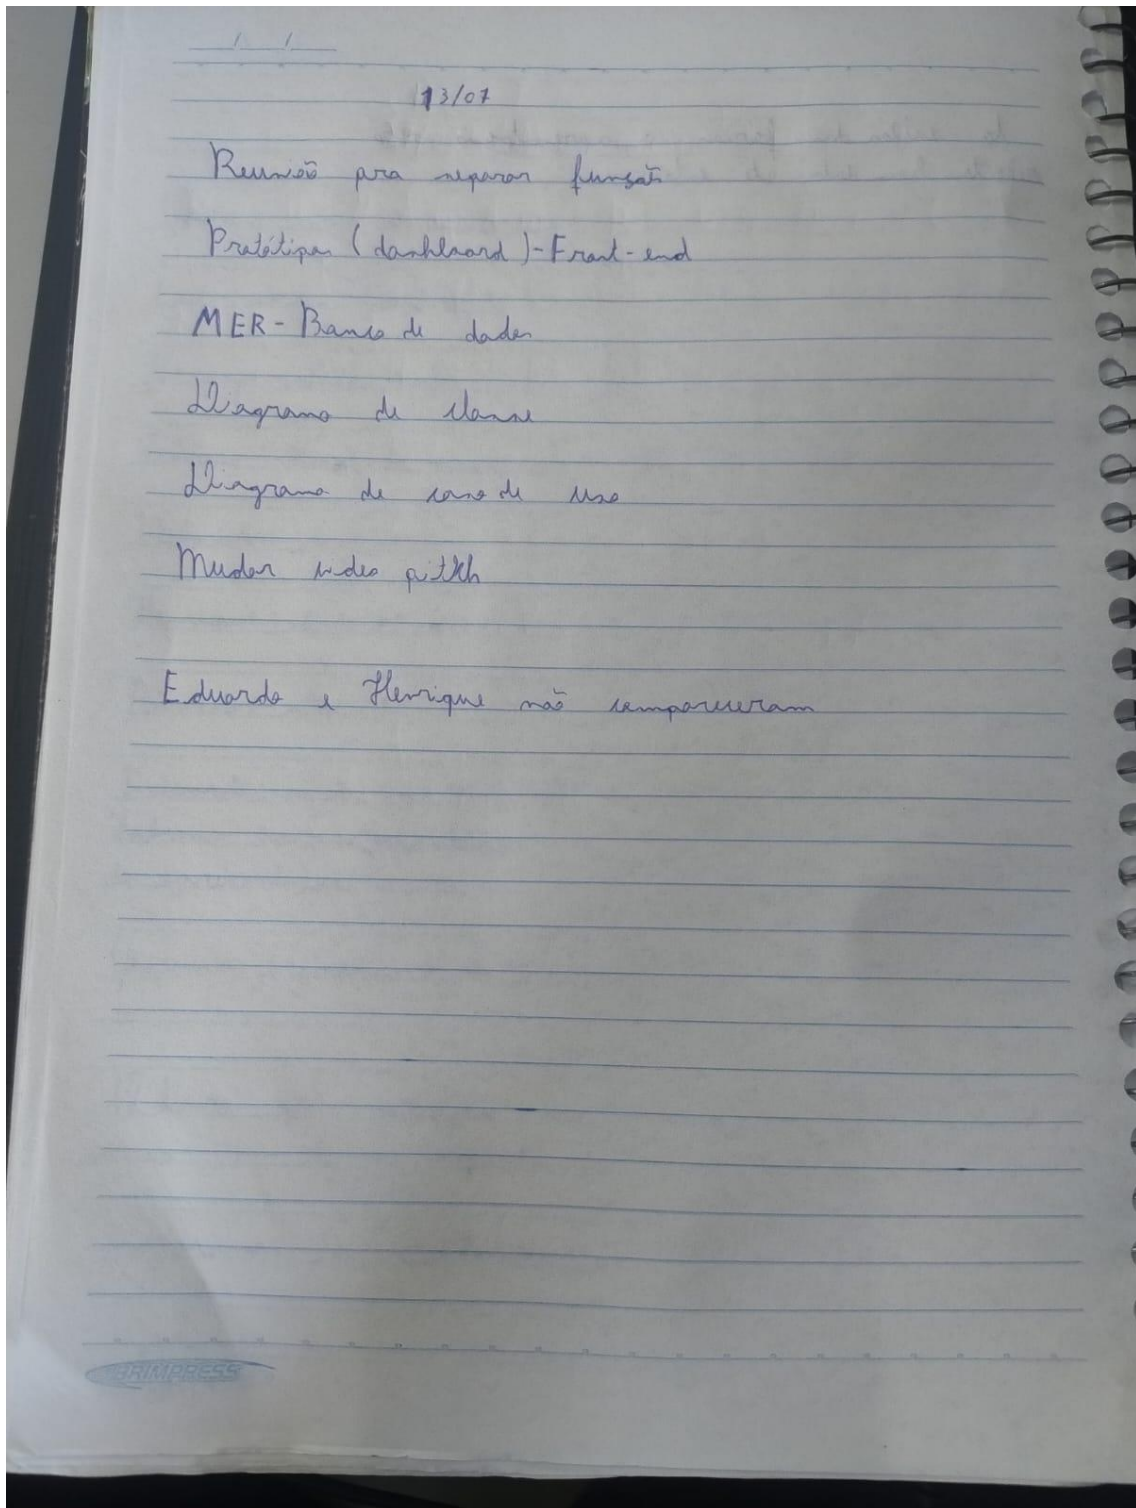 13/07
Reunião pra separar funsão
Protótipos (dashboard)-Front-end
MER-Banco de dados
Diagrama de classe
Diagrama de caso de uso
Mudar video pitch
Eduardo e Henrique não compareceram
BRIMPRESS